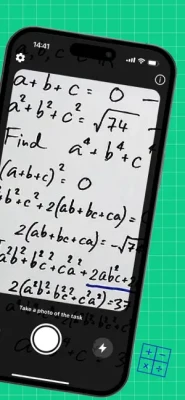 14:41
a + b + c = 0
a² + b² + c² = √74
Find a⁴ + b⁴ + c
(a+b+c)² = 0
b² + c² + 2(ab + bc + ca) =
2(ab + bc + ca) = -√7
a²b² + b²c² + c²a² + 2ab²c +
2(a²b² + b²c² + c²a²) = 37
Take a photo of the task